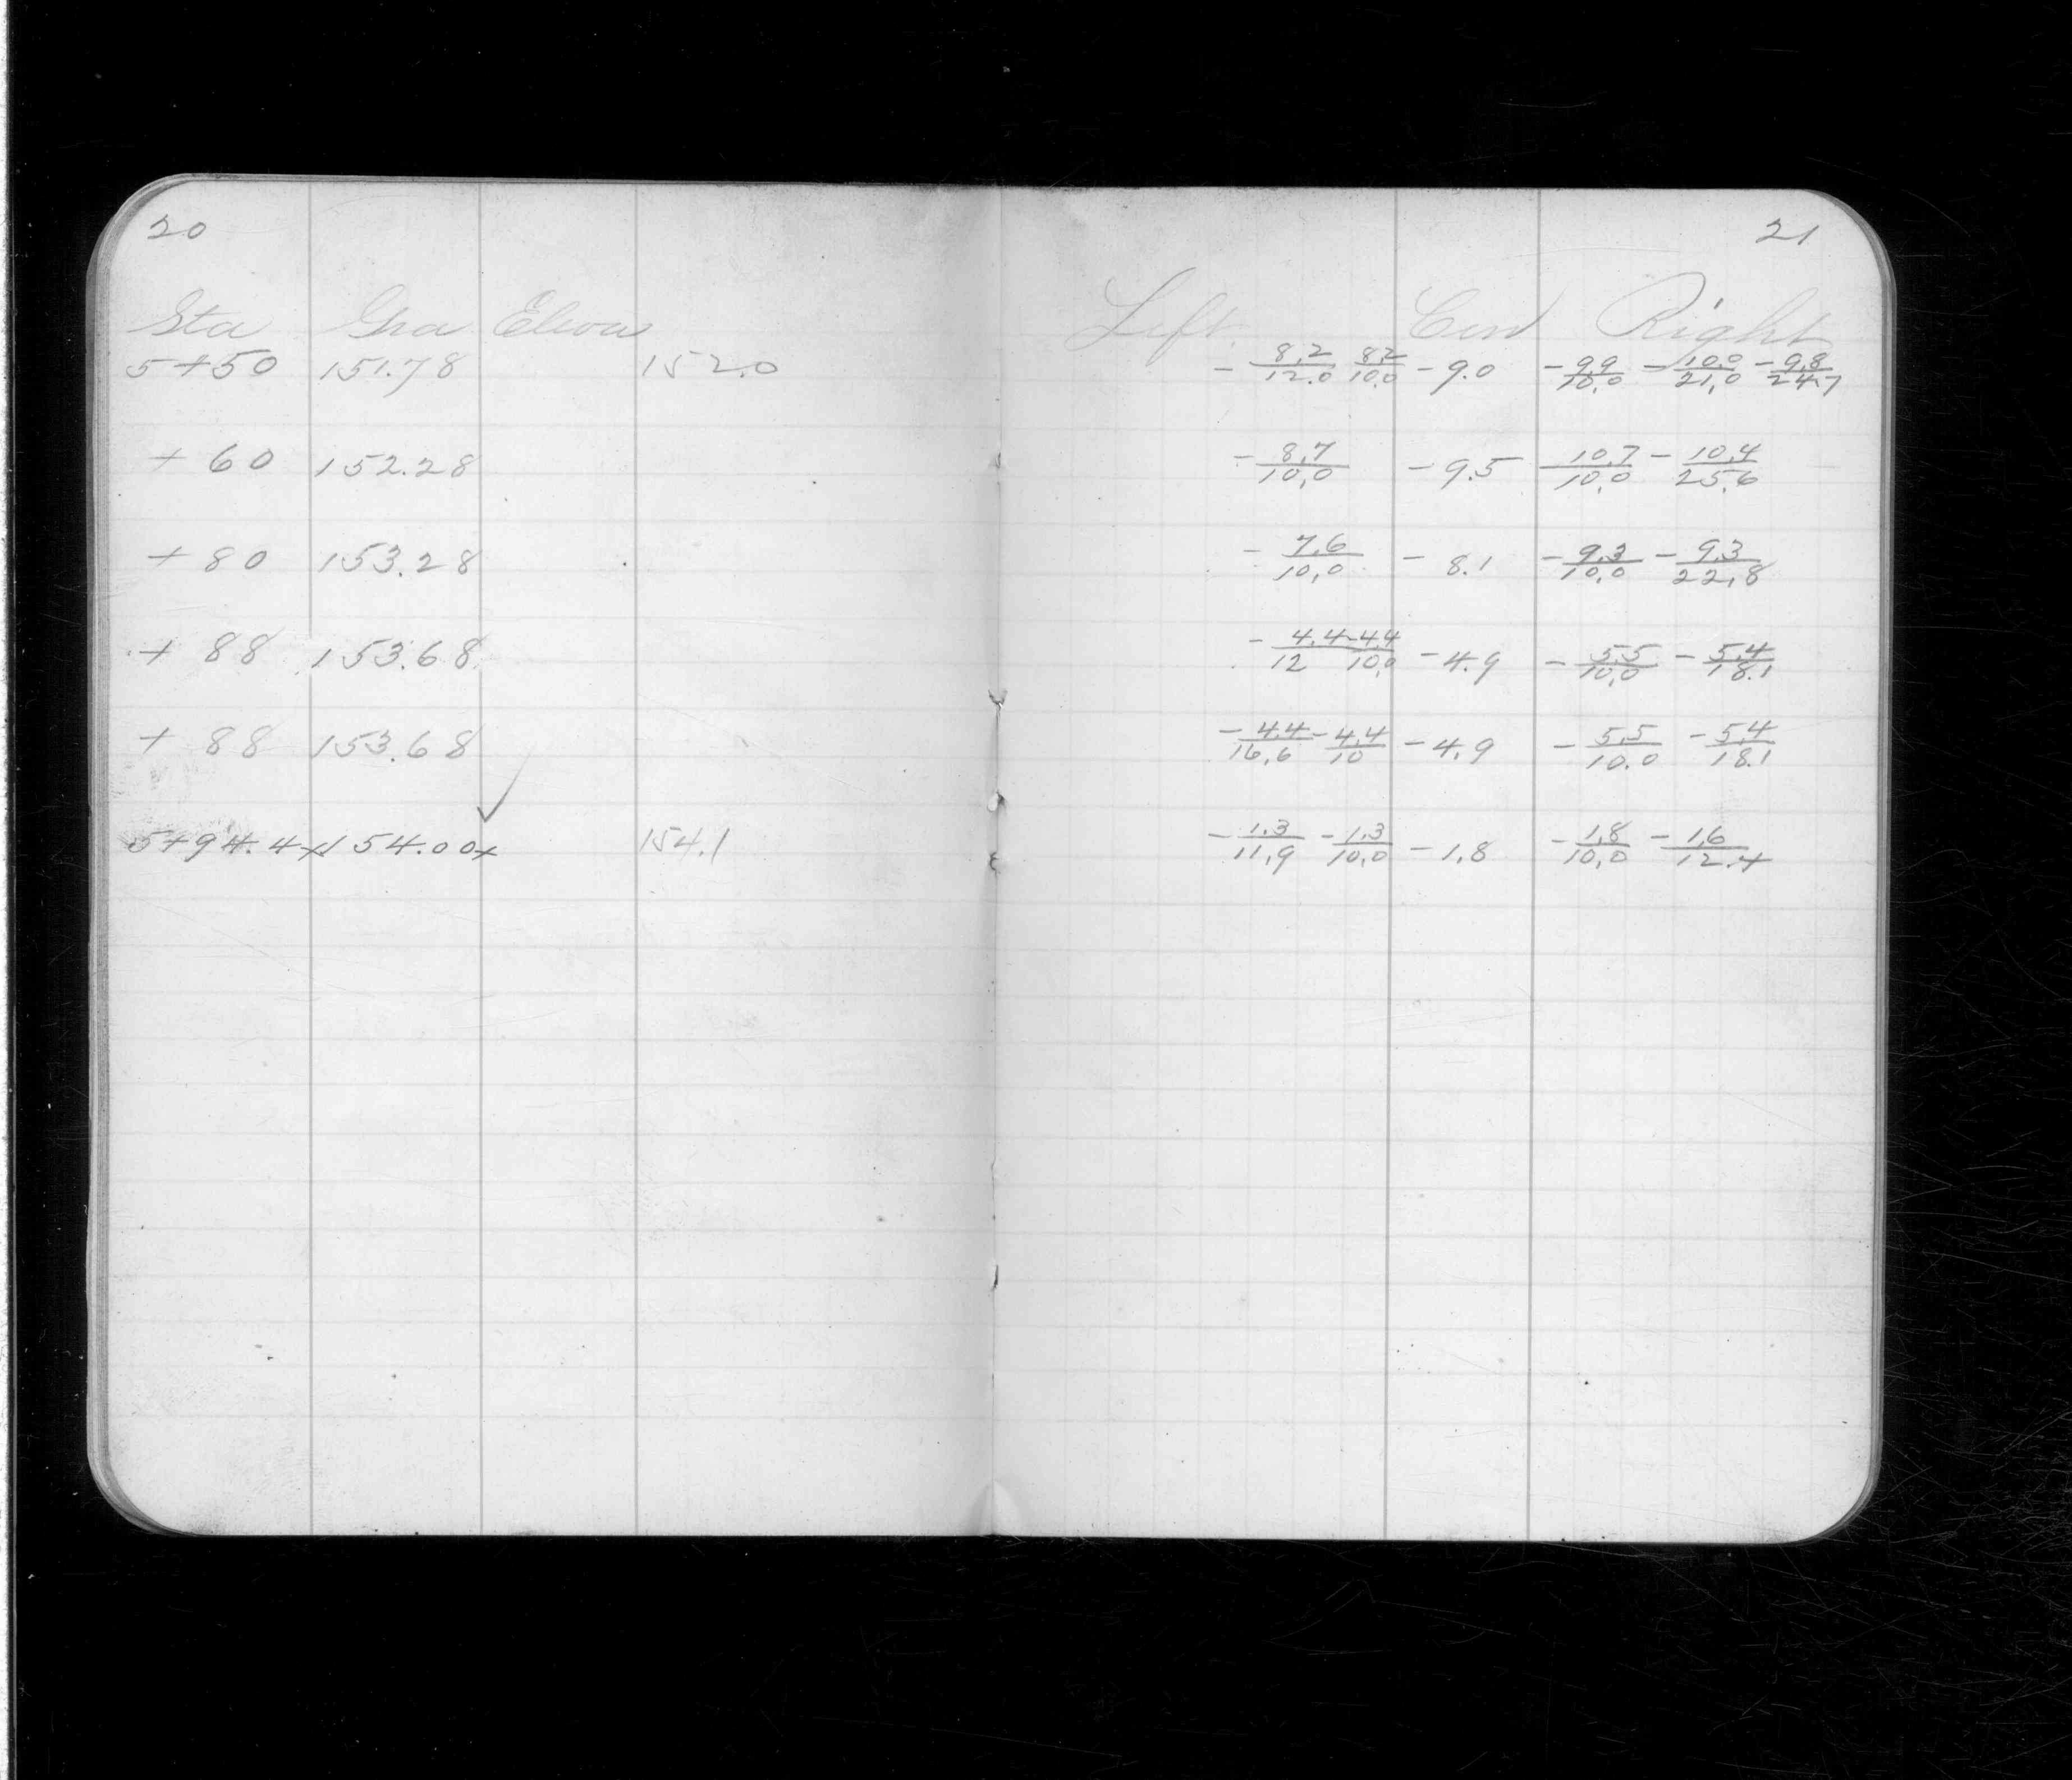 20
Sta Gra Eleva
5+50 151.78 152.0
+ 60 152.28
+ 80 153.28
+ 88 153.68
+ 88 153.68
5+94.4x 154.00x 154.1
21
Left Cen Right
- 8.2/12.0 8.2/10.0 - 9.0 - 9.9/10.0 - 10.0/21.0 - 9.8/24.7
- 8.7/10.0 - 9.5 10.7/10.0 - 10.4/25.6
- 7.6/10.0 - 8.1 - 9.3/10.0 - 9.3/22.8
- 4.4/12 - 4.4/10.0 - 4.9 - 5.5/10.0 - 5.4/18.1
- 4.4/16.6 - 4.4/10 - 4.9 - 5.5/10.0 - 5.4/18.1
- 1.3/11.9 - 1.3/10.0 - 1.8 - 1.8/10.0 - 1.6/12.4